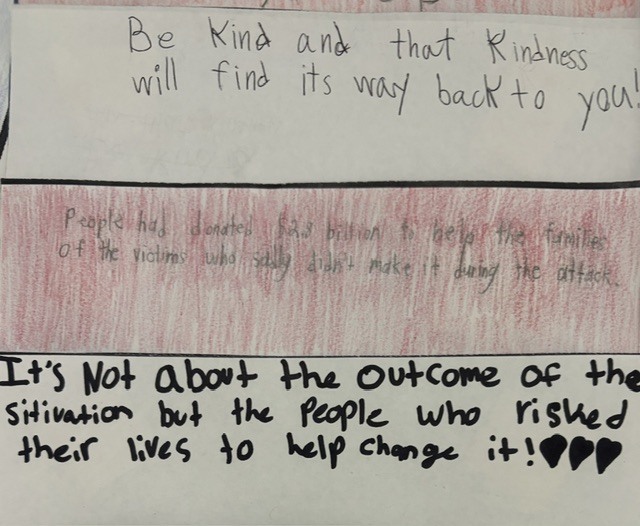 Be Kind and that Kindness
will find its way back to you!
People had donated $2.3 billion to help the families
of the victims who sadly didn't make it during the attack.
It's Not about the outcome of the
sitivation but the People who risked
their lives to help change it!♥♥♥